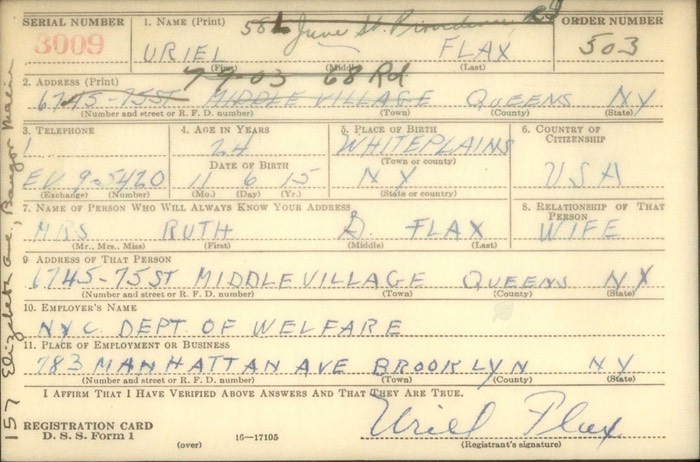 SERIAL NUMBER
3009
1. NAME (Print)
586 June St. Providence RI
ORDER NUMBER
503
URIEL — FLAX
(First) (Middle) (Last)
77-03 68 Rd
2. ADDRESS (Print)
6745-75 ST MIDDLE VILLAGE QUEENS NY
(Number and street or R. F. D. number) (Town) (County) (State)
3. TELEPHONE
4. AGE IN YEARS
24
5. PLACE OF BIRTH
WHITEPLAINS
(Town or county)
6. COUNTRY OF CITIZENSHIP
USA
DATE OF BIRTH
EV 9-5420
11 6 15
NY
(Exchange) (Number) (Mo.) (Day) (Yr.) (State or country)
7. NAME OF PERSON WHO WILL ALWAYS KNOW YOUR ADDRESS
8. RELATIONSHIP OF THAT PERSON
MRS RUTH G. FLAX WIFE
(Mr., Mrs., Miss) (First) (Middle) (Last)
9. ADDRESS OF THAT PERSON
6745-75 ST MIDDLE VILLAGE QUEENS NY
(Number and street or R. F. D. number) (Town) (County) (State)
10. EMPLOYER'S NAME
NYC DEPT OF WELFARE
11. PLACE OF EMPLOYMENT OR BUSINESS
783 MANHATTAN AVE BROOKLYN NY
(Number and street or R. F. D. number) (Town) (County) (State)
I AFFIRM THAT I HAVE VERIFIED ABOVE ANSWERS AND THAT THEY ARE TRUE.
REGISTRATION CARD
D. S. S. Form 1
(over)
16-17105
Uriel Flax
(Registrant's signature)
157 Elizabeth ave., Bangor Maine